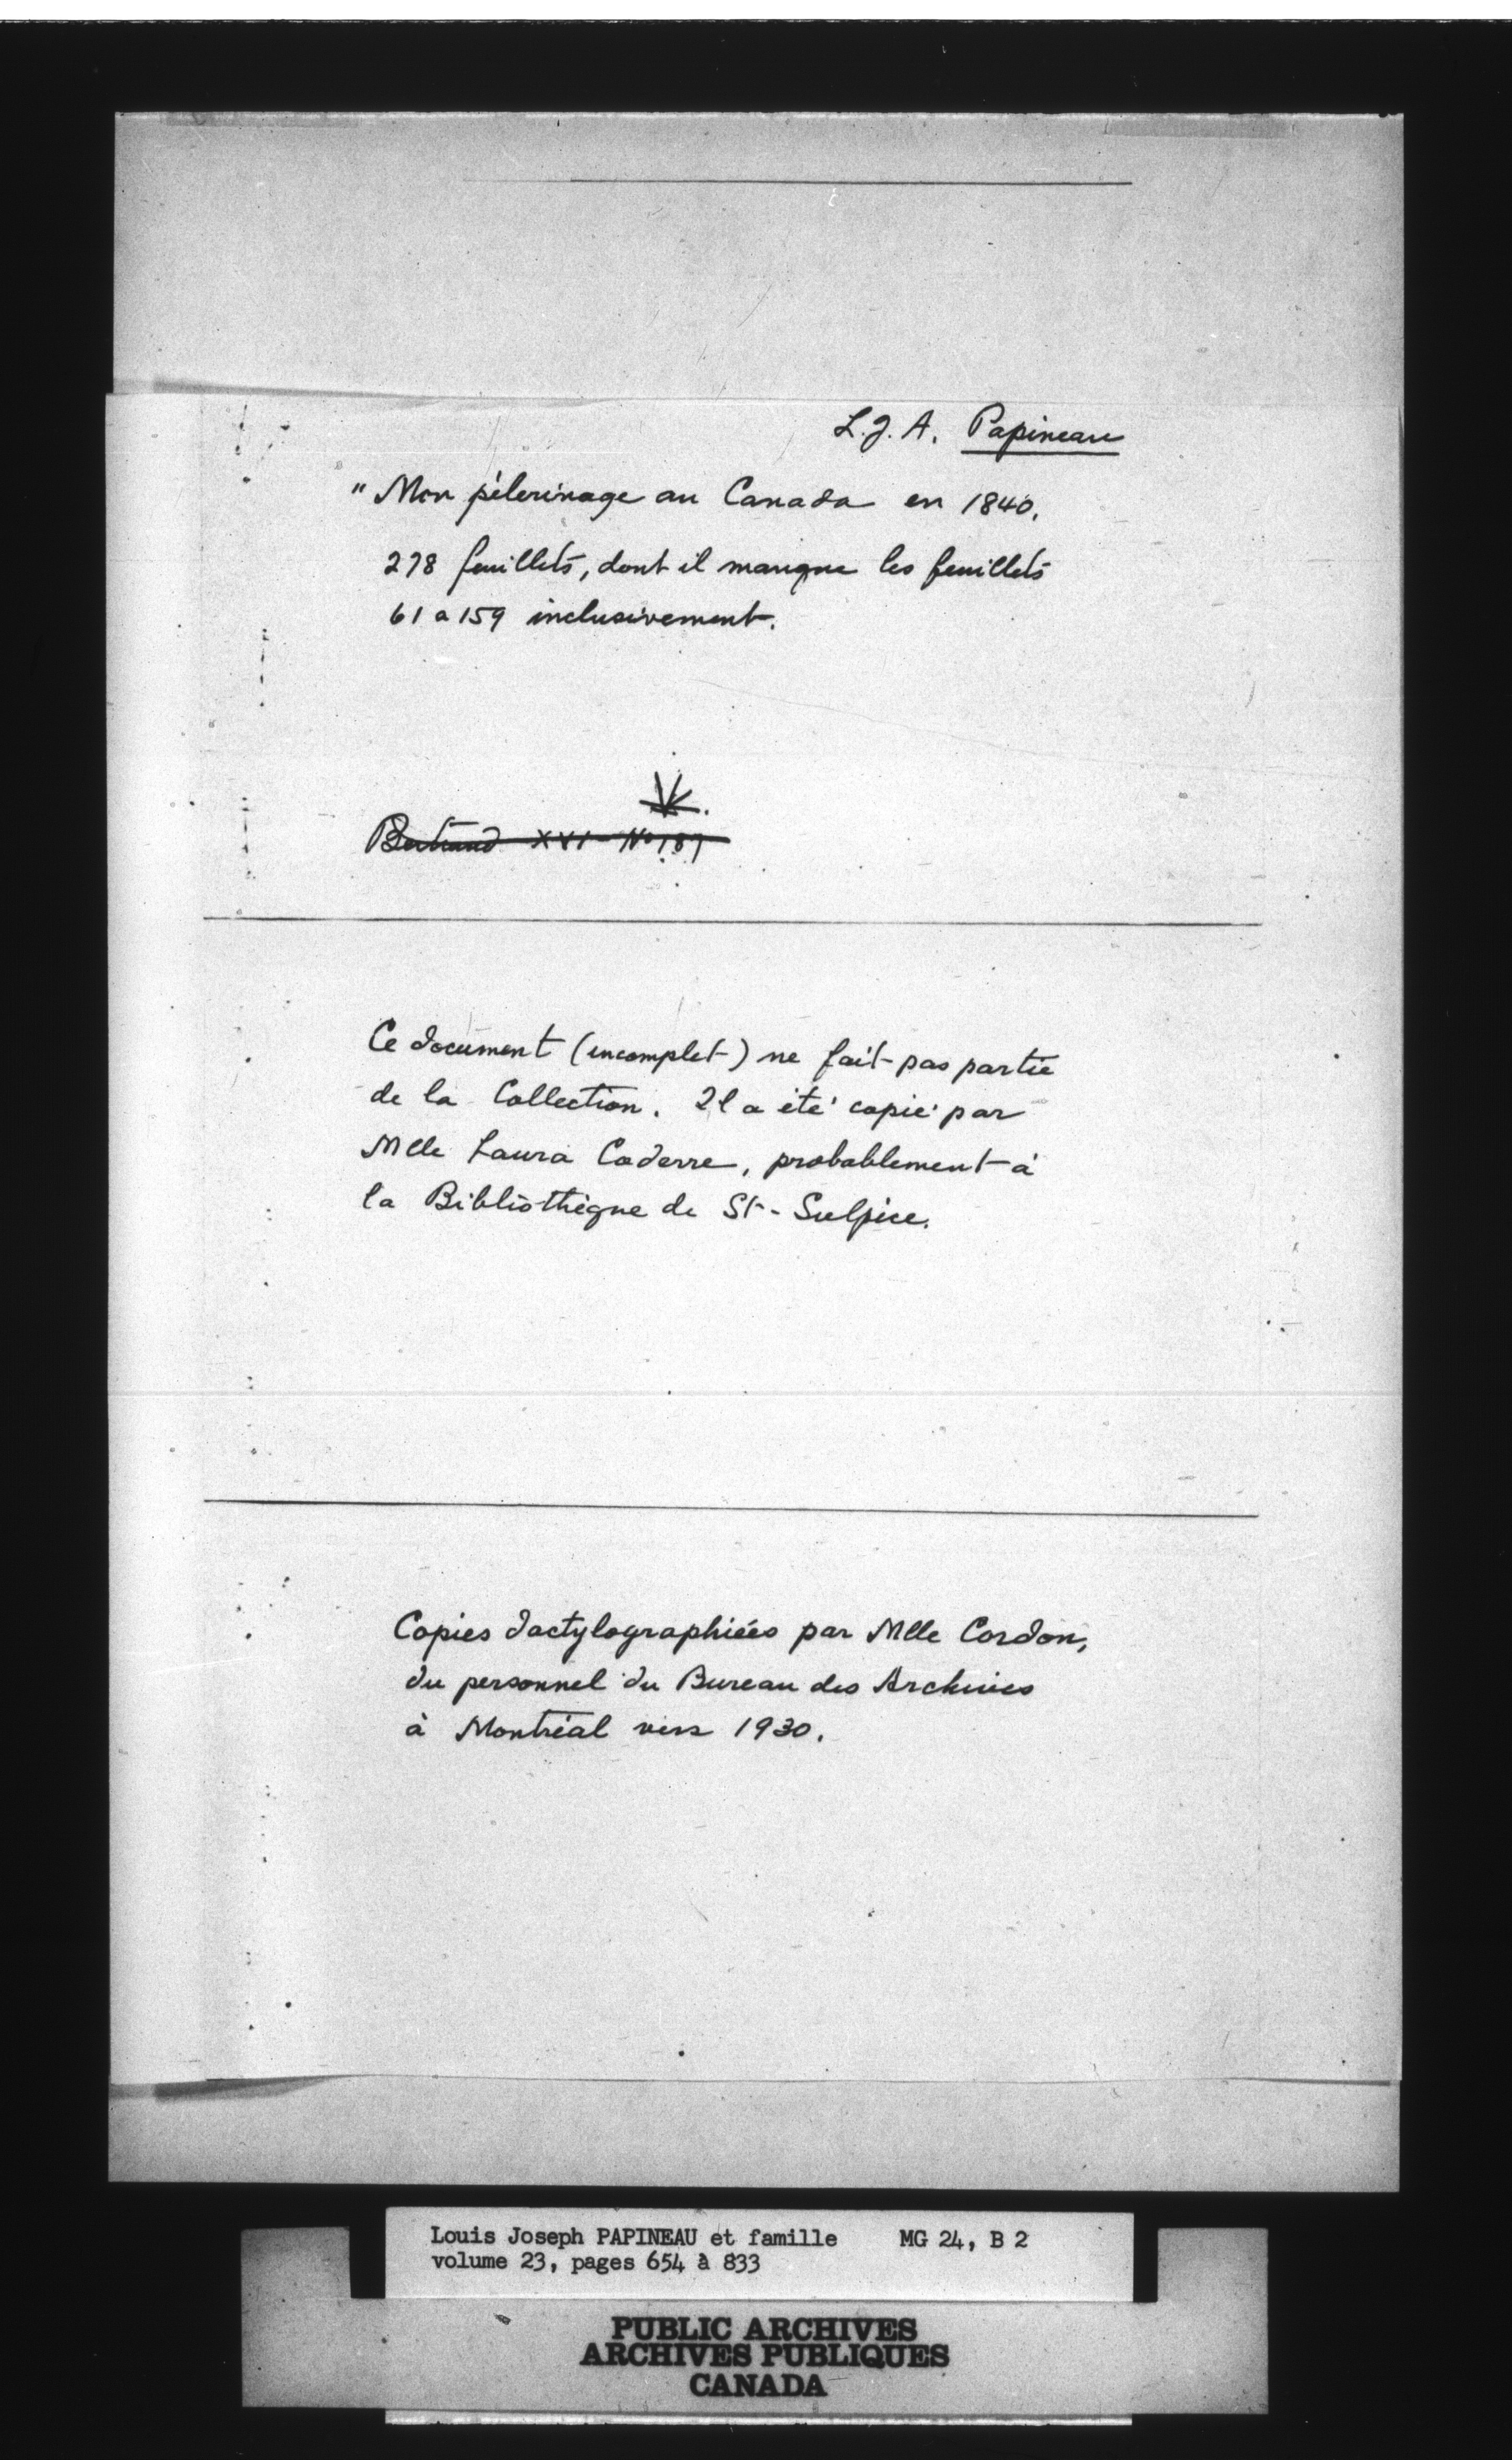 L.J.A. Papineau
" Mon pèlerinage au Canada en 1840.
278 feuillets, dont il manque les feuillets
61 a 159 inclusivement.
Bertrand XVI - No 187
Ce document (incomplet) ne fait pas partie
de la Collection. Il a été copié par
Mlle Laura Coderre, probablement à
la Bibliothèque de St-Sulpice.
Copies dactylographiées par Mlle Cordon,
du personnel du Bureau des Archives
à Montréal vers 1930.
Louis Joseph PAPINEAU et famille MG 24, B 2
volume 23, pages 654 à 833
PUBLIC ARCHIVES
ARCHIVES PUBLIQUES
CANADA